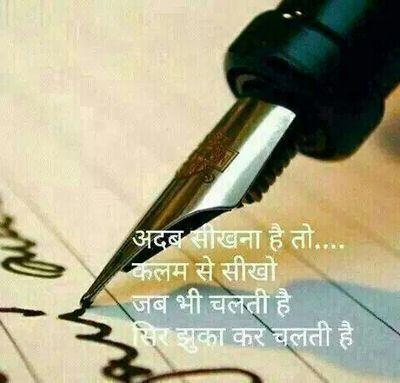 अदब सीखना है तो....
कलम से सीखो
जब भी चलती है
सिर झुका कर चलती है